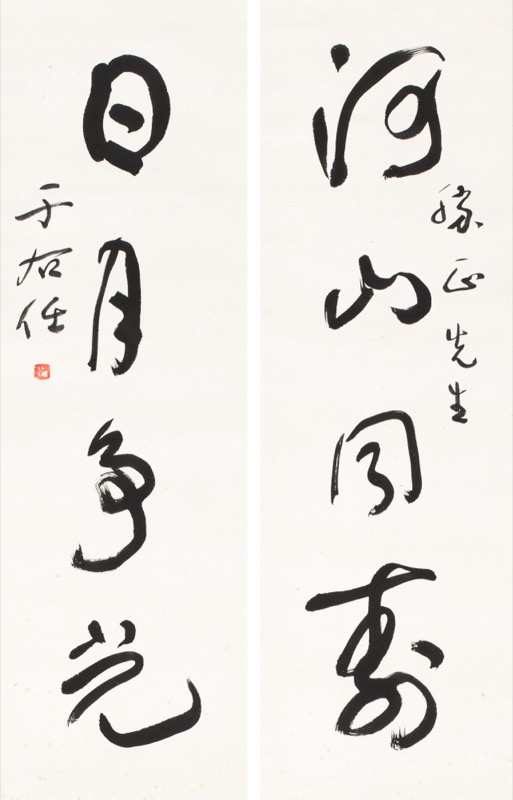 河山同壽
勝正先生
日月爭光
于右任